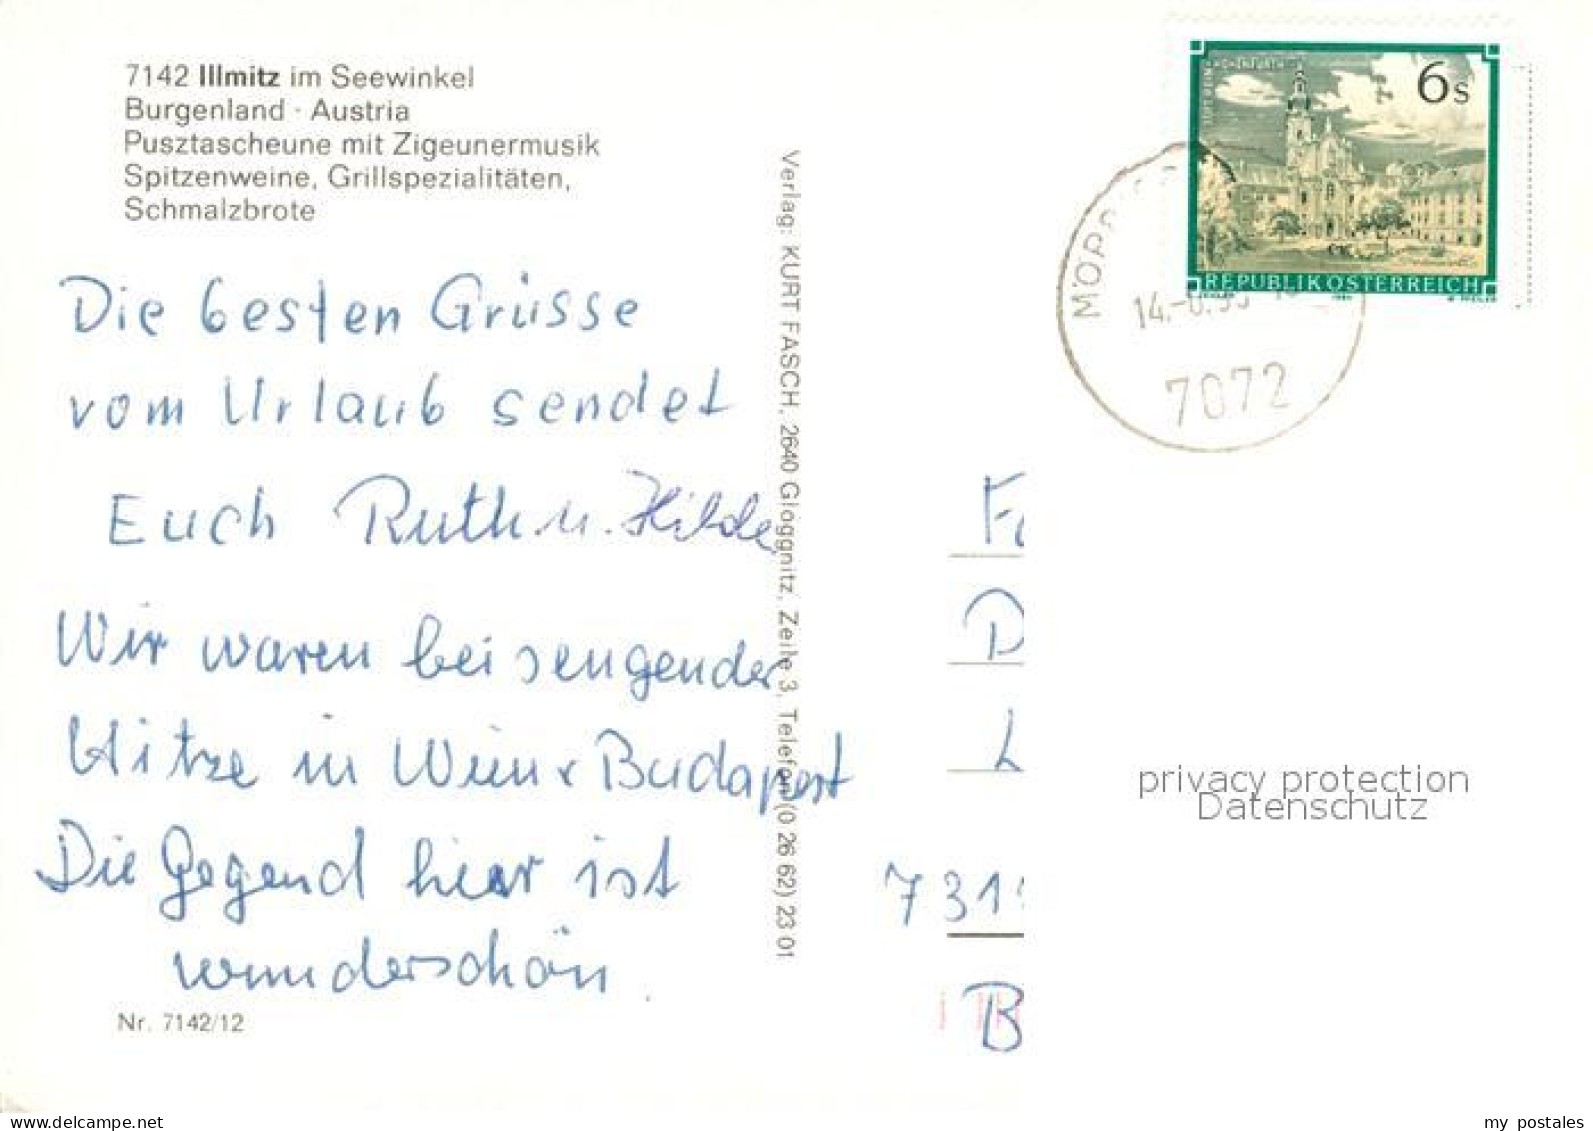 7142 Illmitz im Seewinkel
Burgenland · Austria
Pusztascheune mit Zigeunermusik
Spitzenweine, Grillspezialitäten,
Schmalzbrote
Die besten Grüsse
vom Urlaub sendet
Euch Ruth u. Hilde
Wir waren bei sengender
Hitze in Wien + Budapest
Die Gegend hier ist
wunderschön.
Nr. 7142/12
Verlag: KURT FASCH, 2640 Gloggnitz, Zeile 3, Telefon (0 26 62) 23 01
6 s
REPUBLIK ÖSTERREICH
7072
D
L
731
B
privacy protection
Datenschutz
my postales